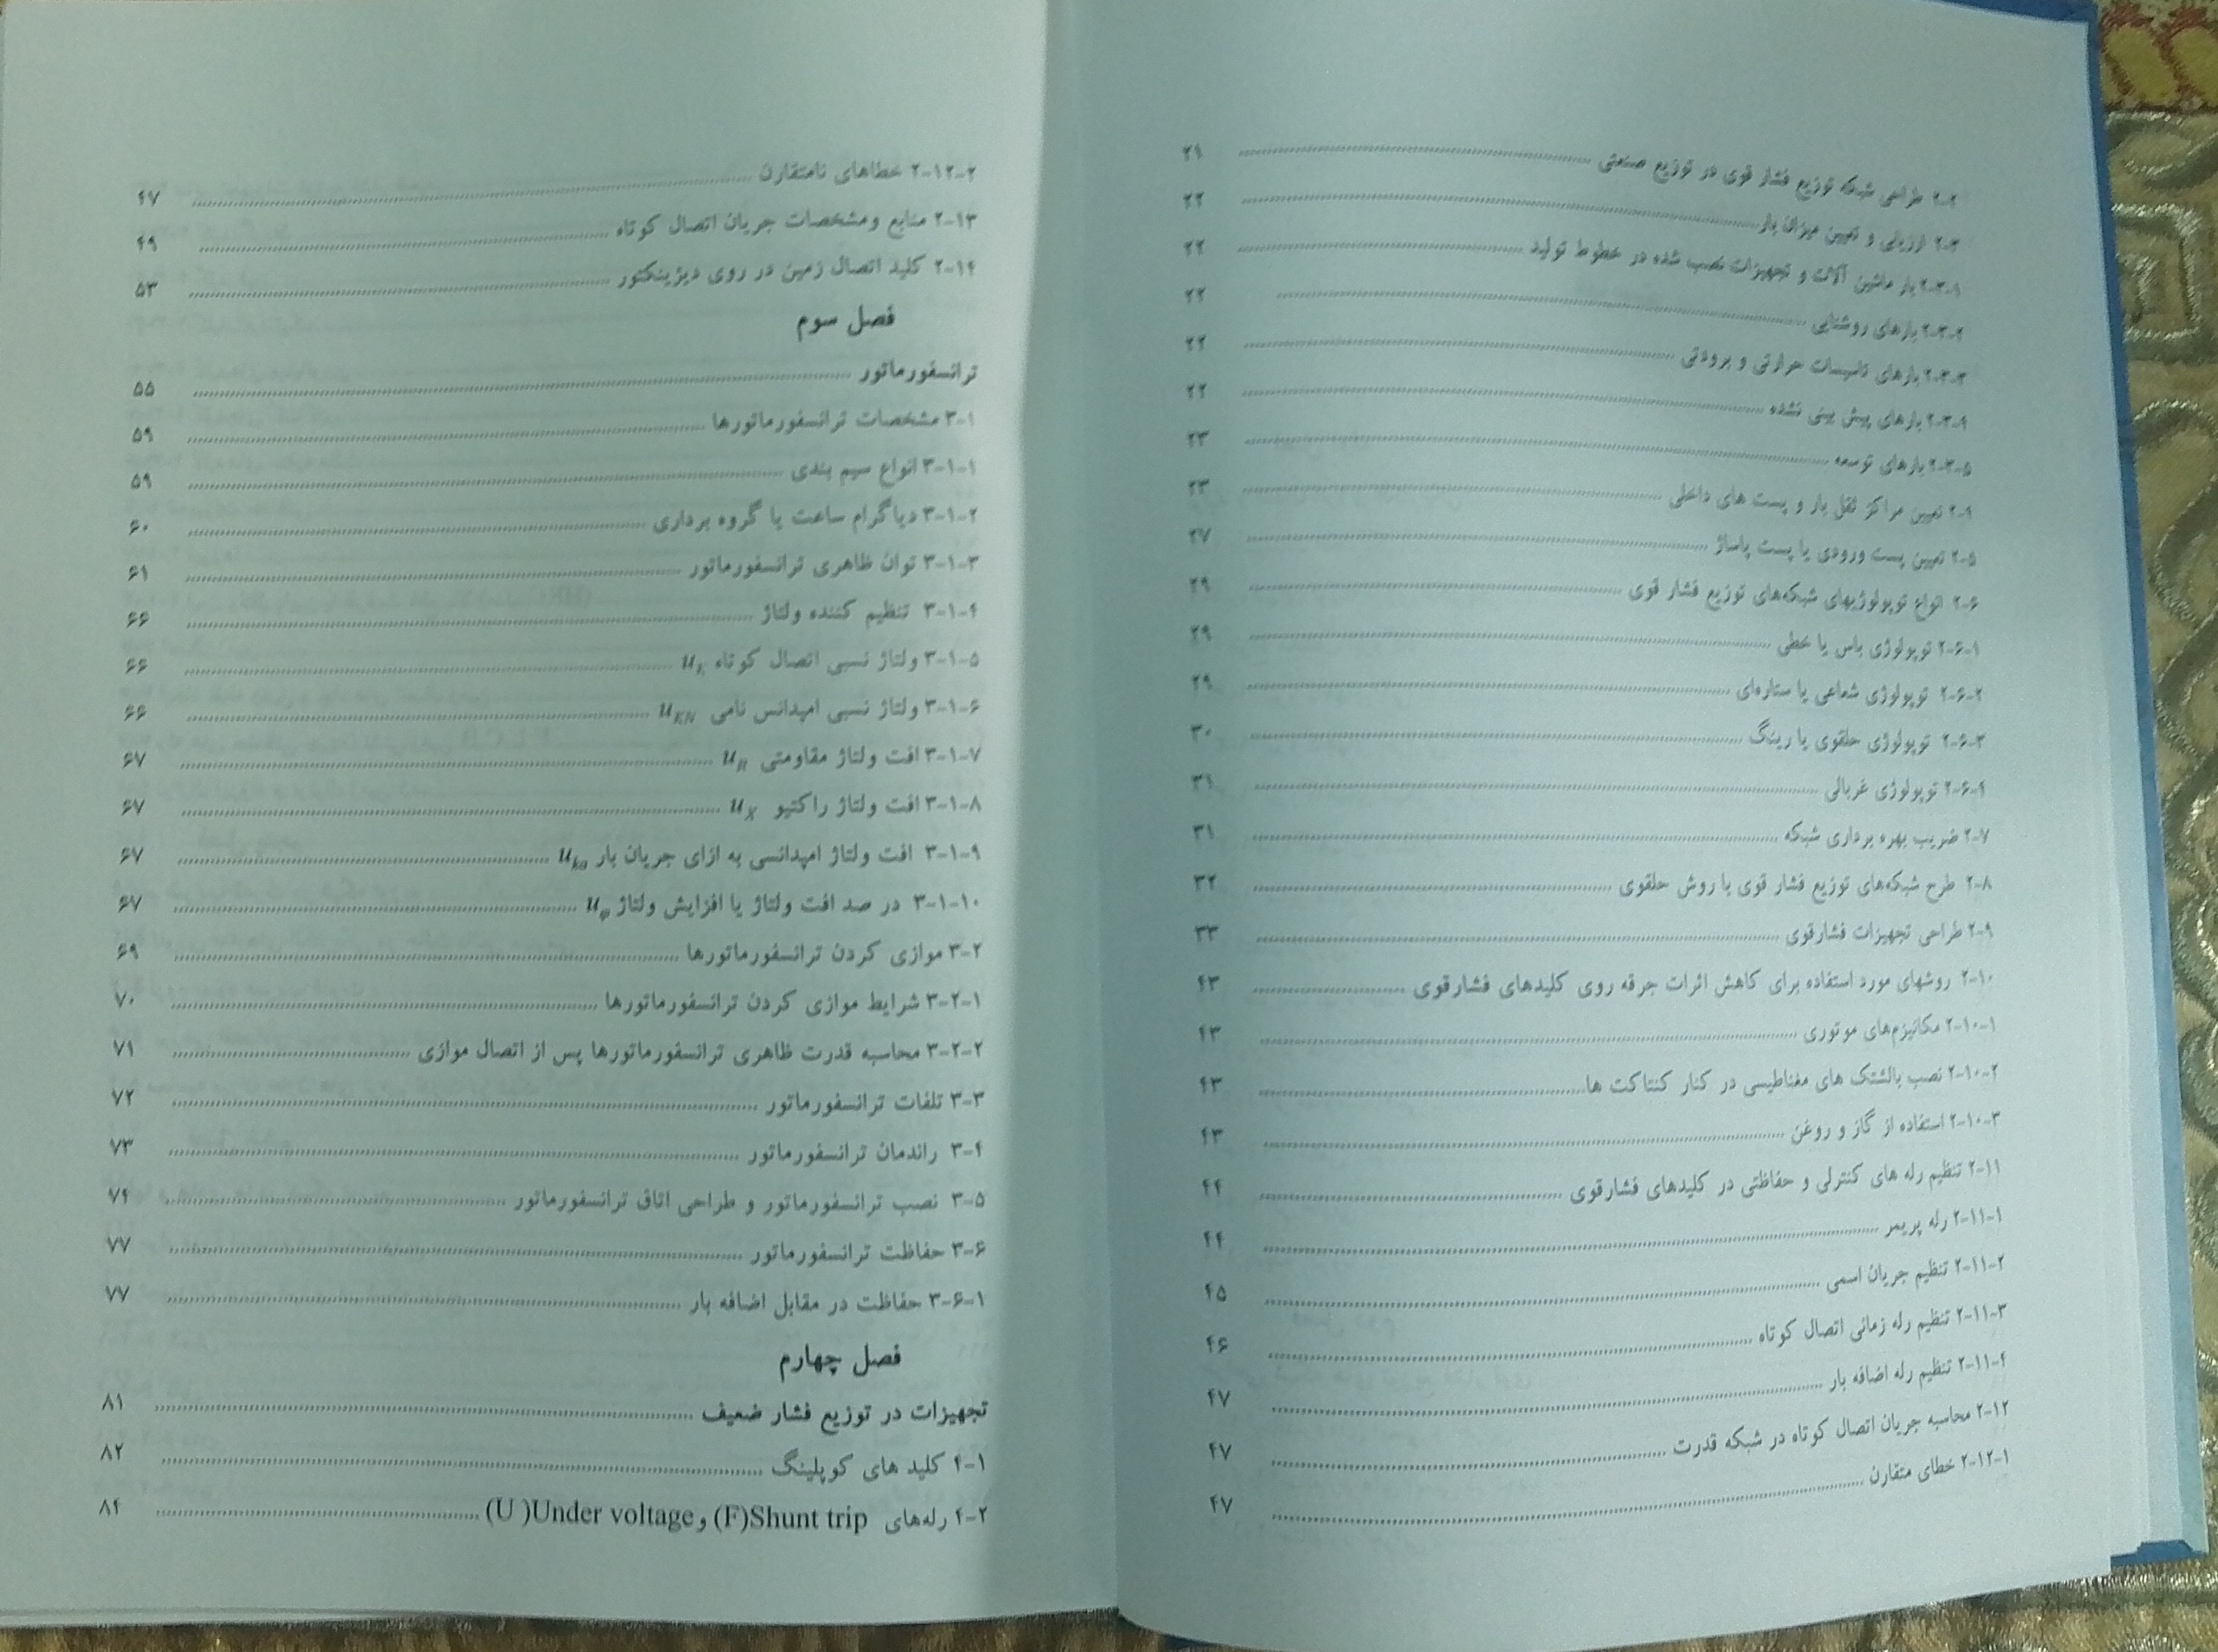 ۲-۲ طراحی شبکه توزیع فشار قوی در توزیع صنعتی ۲۱
۲-۳ ارزیابی و تعیین میزان بار ۲۲
۲-۳-۱ بار ماشین آلات و تجهیزات نصب شده در خطوط تولید ۲۲
۲-۳-۲ بارهای روشنایی ۲۲
۲-۳-۳ بارهای تاسیسات حرارتی و برودتی ۲۲
۲-۳-۴ بارهای پیش بینی نشده ۲۲
۲-۳-۵ بارهای توسعه ۲۳
۲-۴ تعیین مراکز ثقل بار و پست های داخلی ۲۳
۲-۵ تعیین پست ورودی یا پست پاساژ ۲۷
۲-۶ انواع توپولوژیهای شبکه‌های توزیع فشار قوی ۲۹
۲-۶-۱ توپولوژی باس یا خطی ۲۹
۲-۶-۲ توپولوژی شعاعی یا ستاره‌ای ۲۹
۲-۶-۳ توپولوژی حلقوی یا رینگ ۳۰
۲-۶-۴ توپولوژی غربالی ۳۱
۲-۷ ضریب بهره برداری شبکه ۳۱
۲-۸ طرح شبکه‌های توزیع فشار قوی با روش حلقوی ۳۲
۲-۹ طراحی تجهیزات فشارقوی ۳۳
۲-۱۰ روشهای مورد استفاده برای کاهش اثرات جرقه روی کلیدهای فشارقوی ۴۳
۲-۱۰-۱ مکانیزم‌های موتوری ۴۳
۲-۱۰-۲ نصب بالشتک های مغناطیسی در کنار کنتاکت ها ۴۳
۲-۱۰-۳ استفاده از گاز و روغن ۴۳
۲-۱۱ تنظیم رله های کنترلی و حفاظتی در کلیدهای فشارقوی ۴۴
۲-۱۱-۱ رله پریمر ۴۴
۲-۱۱-۲ تنظیم جریان اسمی ۴۵
۲-۱۱-۳ تنظیم رله زمانی اتصال کوتاه ۴۶
۲-۱۱-۴ تنظیم رله اضافه بار ۴۷
۲-۱۲ محاسبه جریان اتصال کوتاه در شبکه قدرت ۴۷
۲-۱۲-۱ خطای متقارن ۴۷
۲-۱۲-۲ خطاهای نامتقارن ۴۷
۲-۱۳ منابع ومشخصات جریان اتصال کوتاه ۴۹
۲-۱۴ کلید اتصال زمین در روی دیژینکتور ۵۳
فصل سوم
ترانسفورماتور ۵۵
۳-۱ مشخصات ترانسفورماتورها ۵۹
۳-۱-۱ انواع سیم بندی ۵۹
۳-۱-۲ دیاگرام ساعت یا گروه برداری ۶۰
۳-۱-۳ توان ظاهری ترانسفورماتور ۶۱
۳-۱-۴ تنظیم کننده ولتاژ ۶۶
۳-۱-۵ ولتاژ نسبی اتصال کوتاه u_k ۶۶
۳-۱-۶ ولتاژ نسبی امپدانس نامی u_KN ۶۶
۳-۱-۷ افت ولتاژ مقاومتی u_R ۶۷
۳-۱-۸ افت ولتاژ راکتیو u_X ۶۷
۳-۱-۹ افت ولتاژ امپدانسی به ازای جریان بار u_ka ۶۷
۳-۱-۱۰ در صد افت ولتاژ یا افزایش ولتاژ u_φ ۶۷
۳-۲ موازی کردن ترانسفورماتورها ۶۹
۳-۲-۱ شرایط موازی کردن ترانسفورماتورها ۷۰
۳-۲-۲ محاسبه قدرت ظاهری ترانسفورماتورها پس از اتصال موازی ۷۱
۳-۳ تلفات ترانسفورماتور ۷۲
۳-۴ راندمان ترانسفورماتور ۷۳
۳-۵ نصب ترانسفورماتور و طراحی اتاق ترانسفورماتور ۷۴
۳-۶ حفاظت ترانسفورماتور ۷۷
۳-۶-۱ حفاظت در مقابل اضافه بار ۷۷
فصل چهارم
تجهیزات در توزیع فشار ضعیف ۸۱
۴-۱ کلید های کوپلینگ ۸۲
۴-۲ رله‌های (F)Shunt trip و (U )Under voltage ۸۴